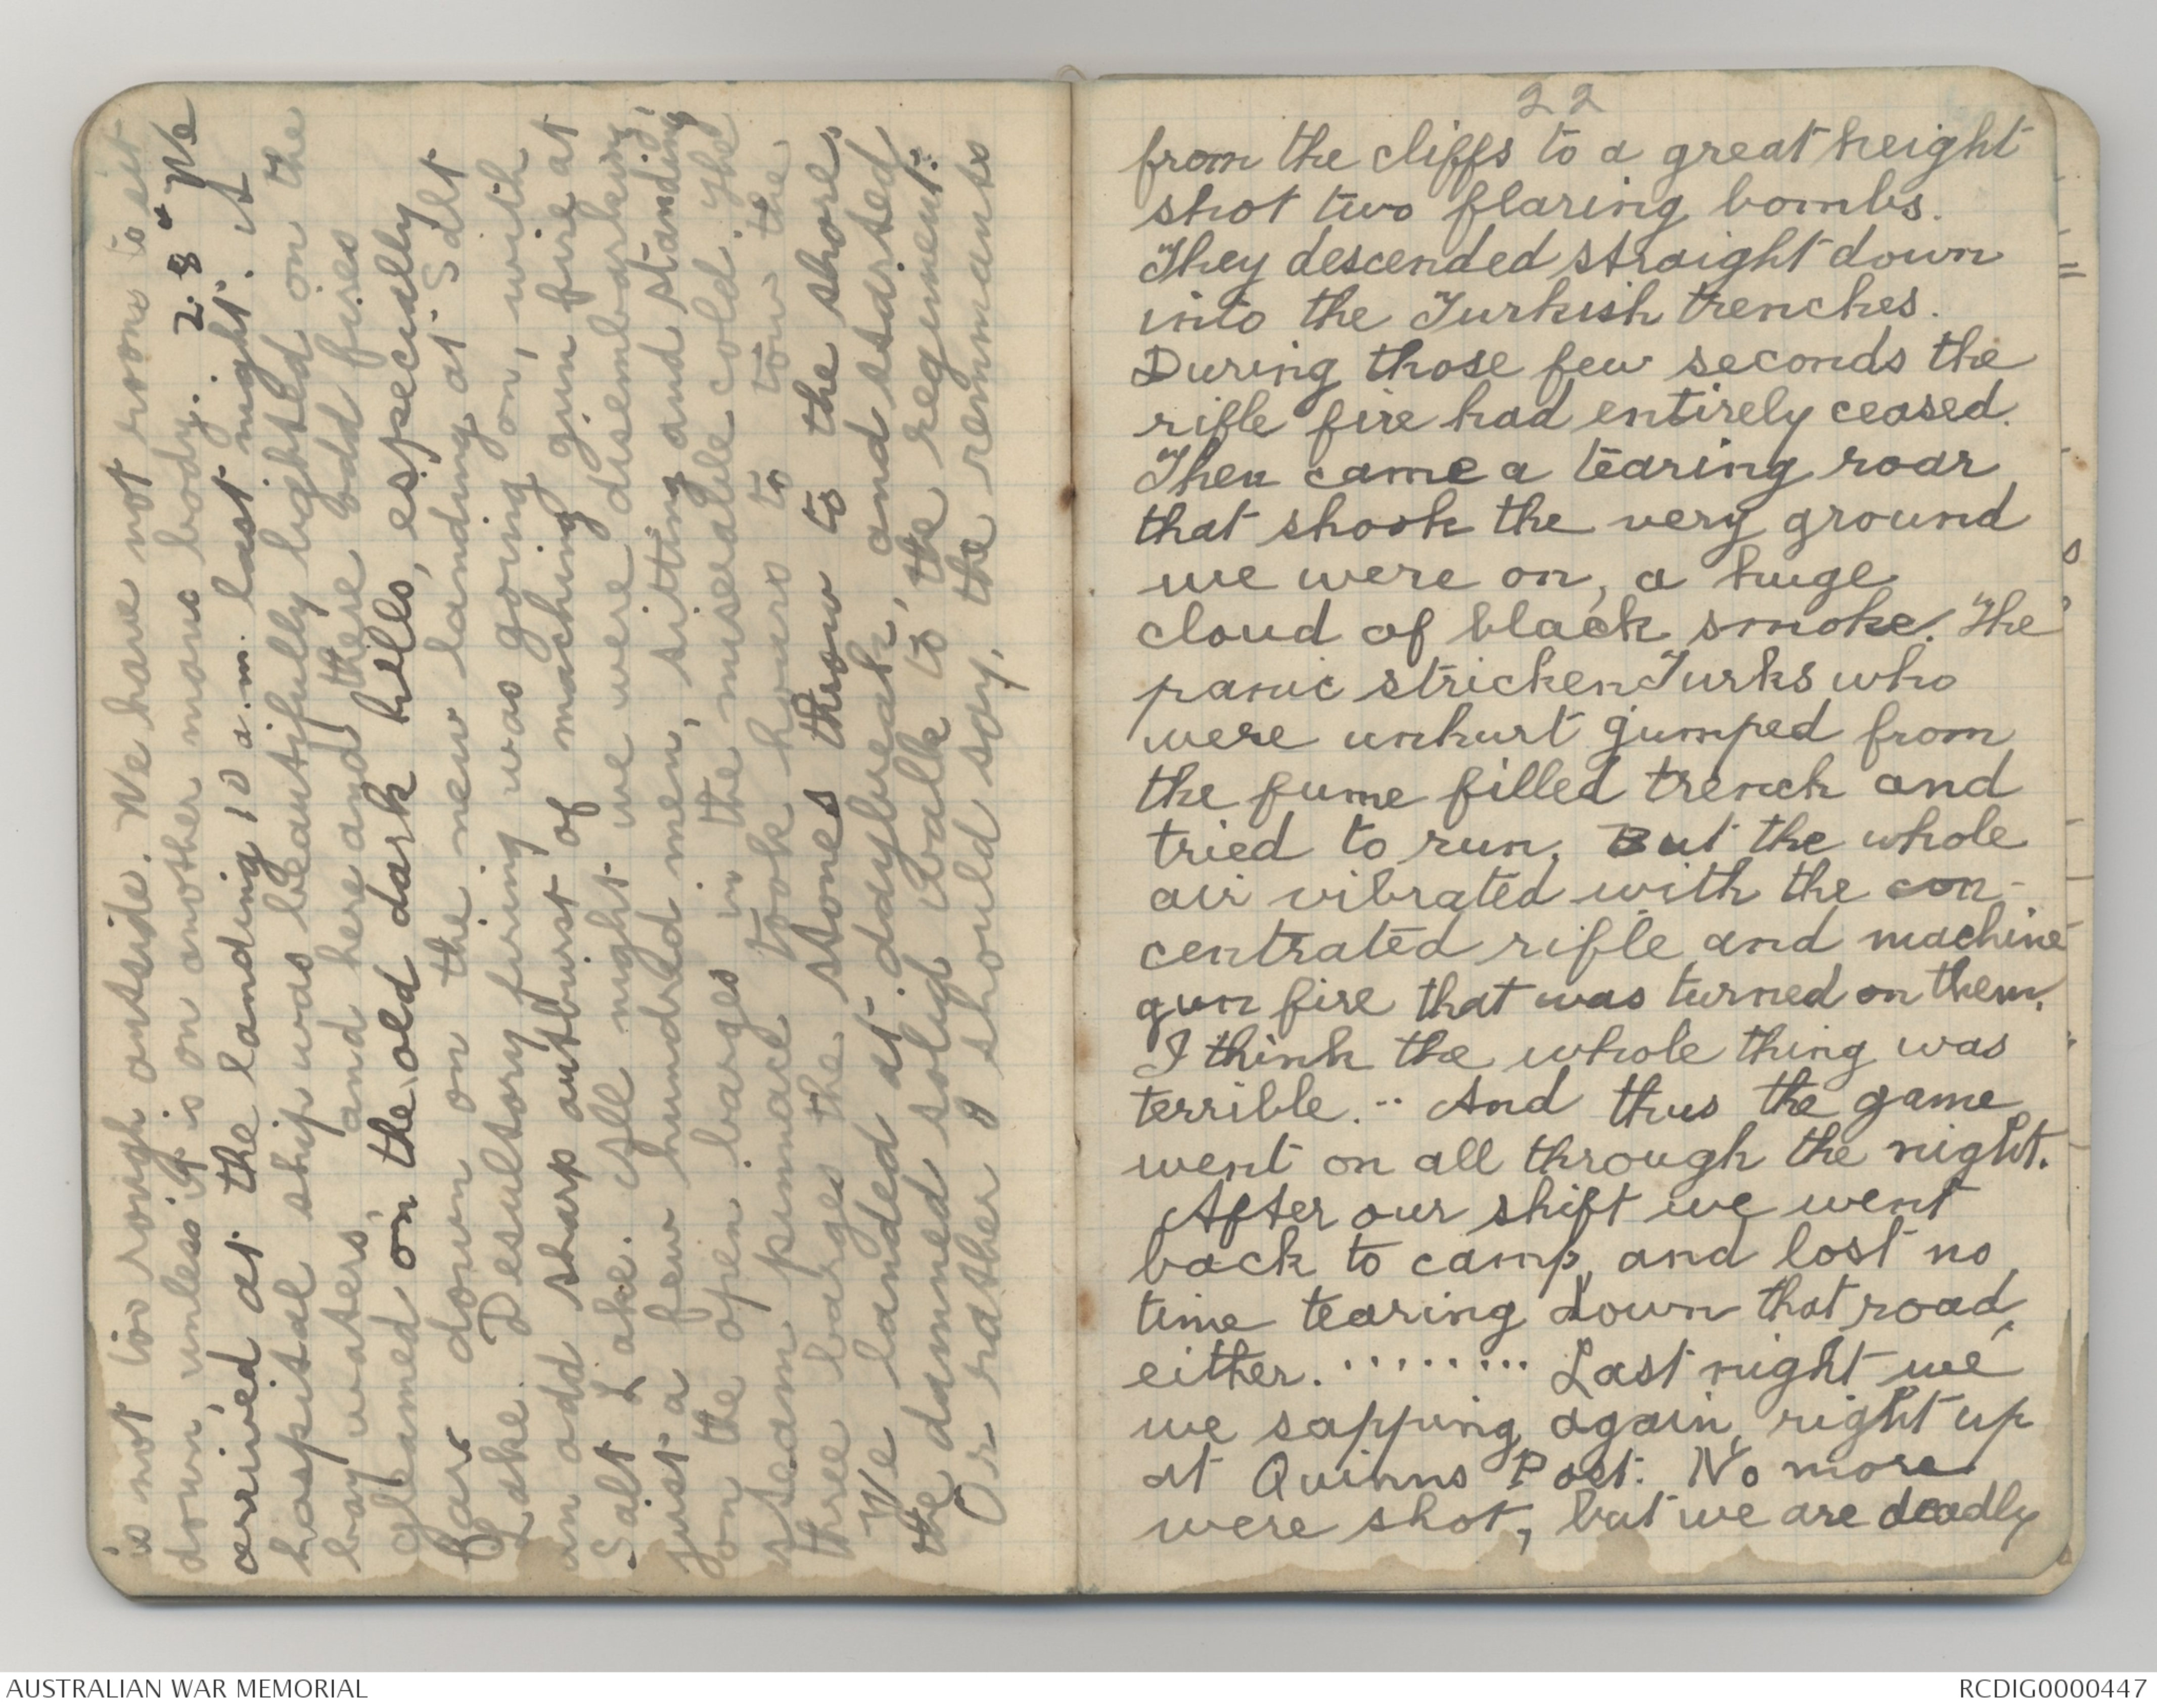 is not too rough outside. We have not room to sit
down, unless it is on another mans body. .. 28" We
arrived at the landing 10 a.m. last night. it
hospital ship was beautifully lighted on the
bay waters, and here and there odd fires
gleamed on the old dark hills, especially
far down on the new landing at Salt
Lake. Desultory firing was going on, with
an odd sharp outburst of maching gun fire at
Salt Lake. All night we were disembarking,
just a few hundred men, sitting and standing
on the open barges in the miserable cold. The
steam pinnace took hours to tow the
three barges the stones throw to the shore,
We landed at daybreak, and started
the damned solid walk to the regiment:
Or rather I should say, the remnants
22
from the cliffs to a great height
shot two flaring bombs.
They descended straight down
into the Turkish trenches.
During those few seconds the
rifle fire had entirely ceased.
Then came a tearing roar
that shook the very ground
we were on, a huge
cloud of black smoke. The
panic stricken Turks who
were unhurt jumped from
the fume filled trench and
tried to run. But the whole
air vibrated with the con-
centrated rifle and machine
gun fire that was turned on them.
I think the whole thing was
terrible. .. And thus the game
went on all through the night.
After our shift we went
back to camp, and lost no
time tearing down that road,
either. ......... Last night we
we sapping again, right up
at Quinns Post. No more
were shot, but we are deadly
AUSTRALIAN WAR MEMORIAL
RCDIG0000447